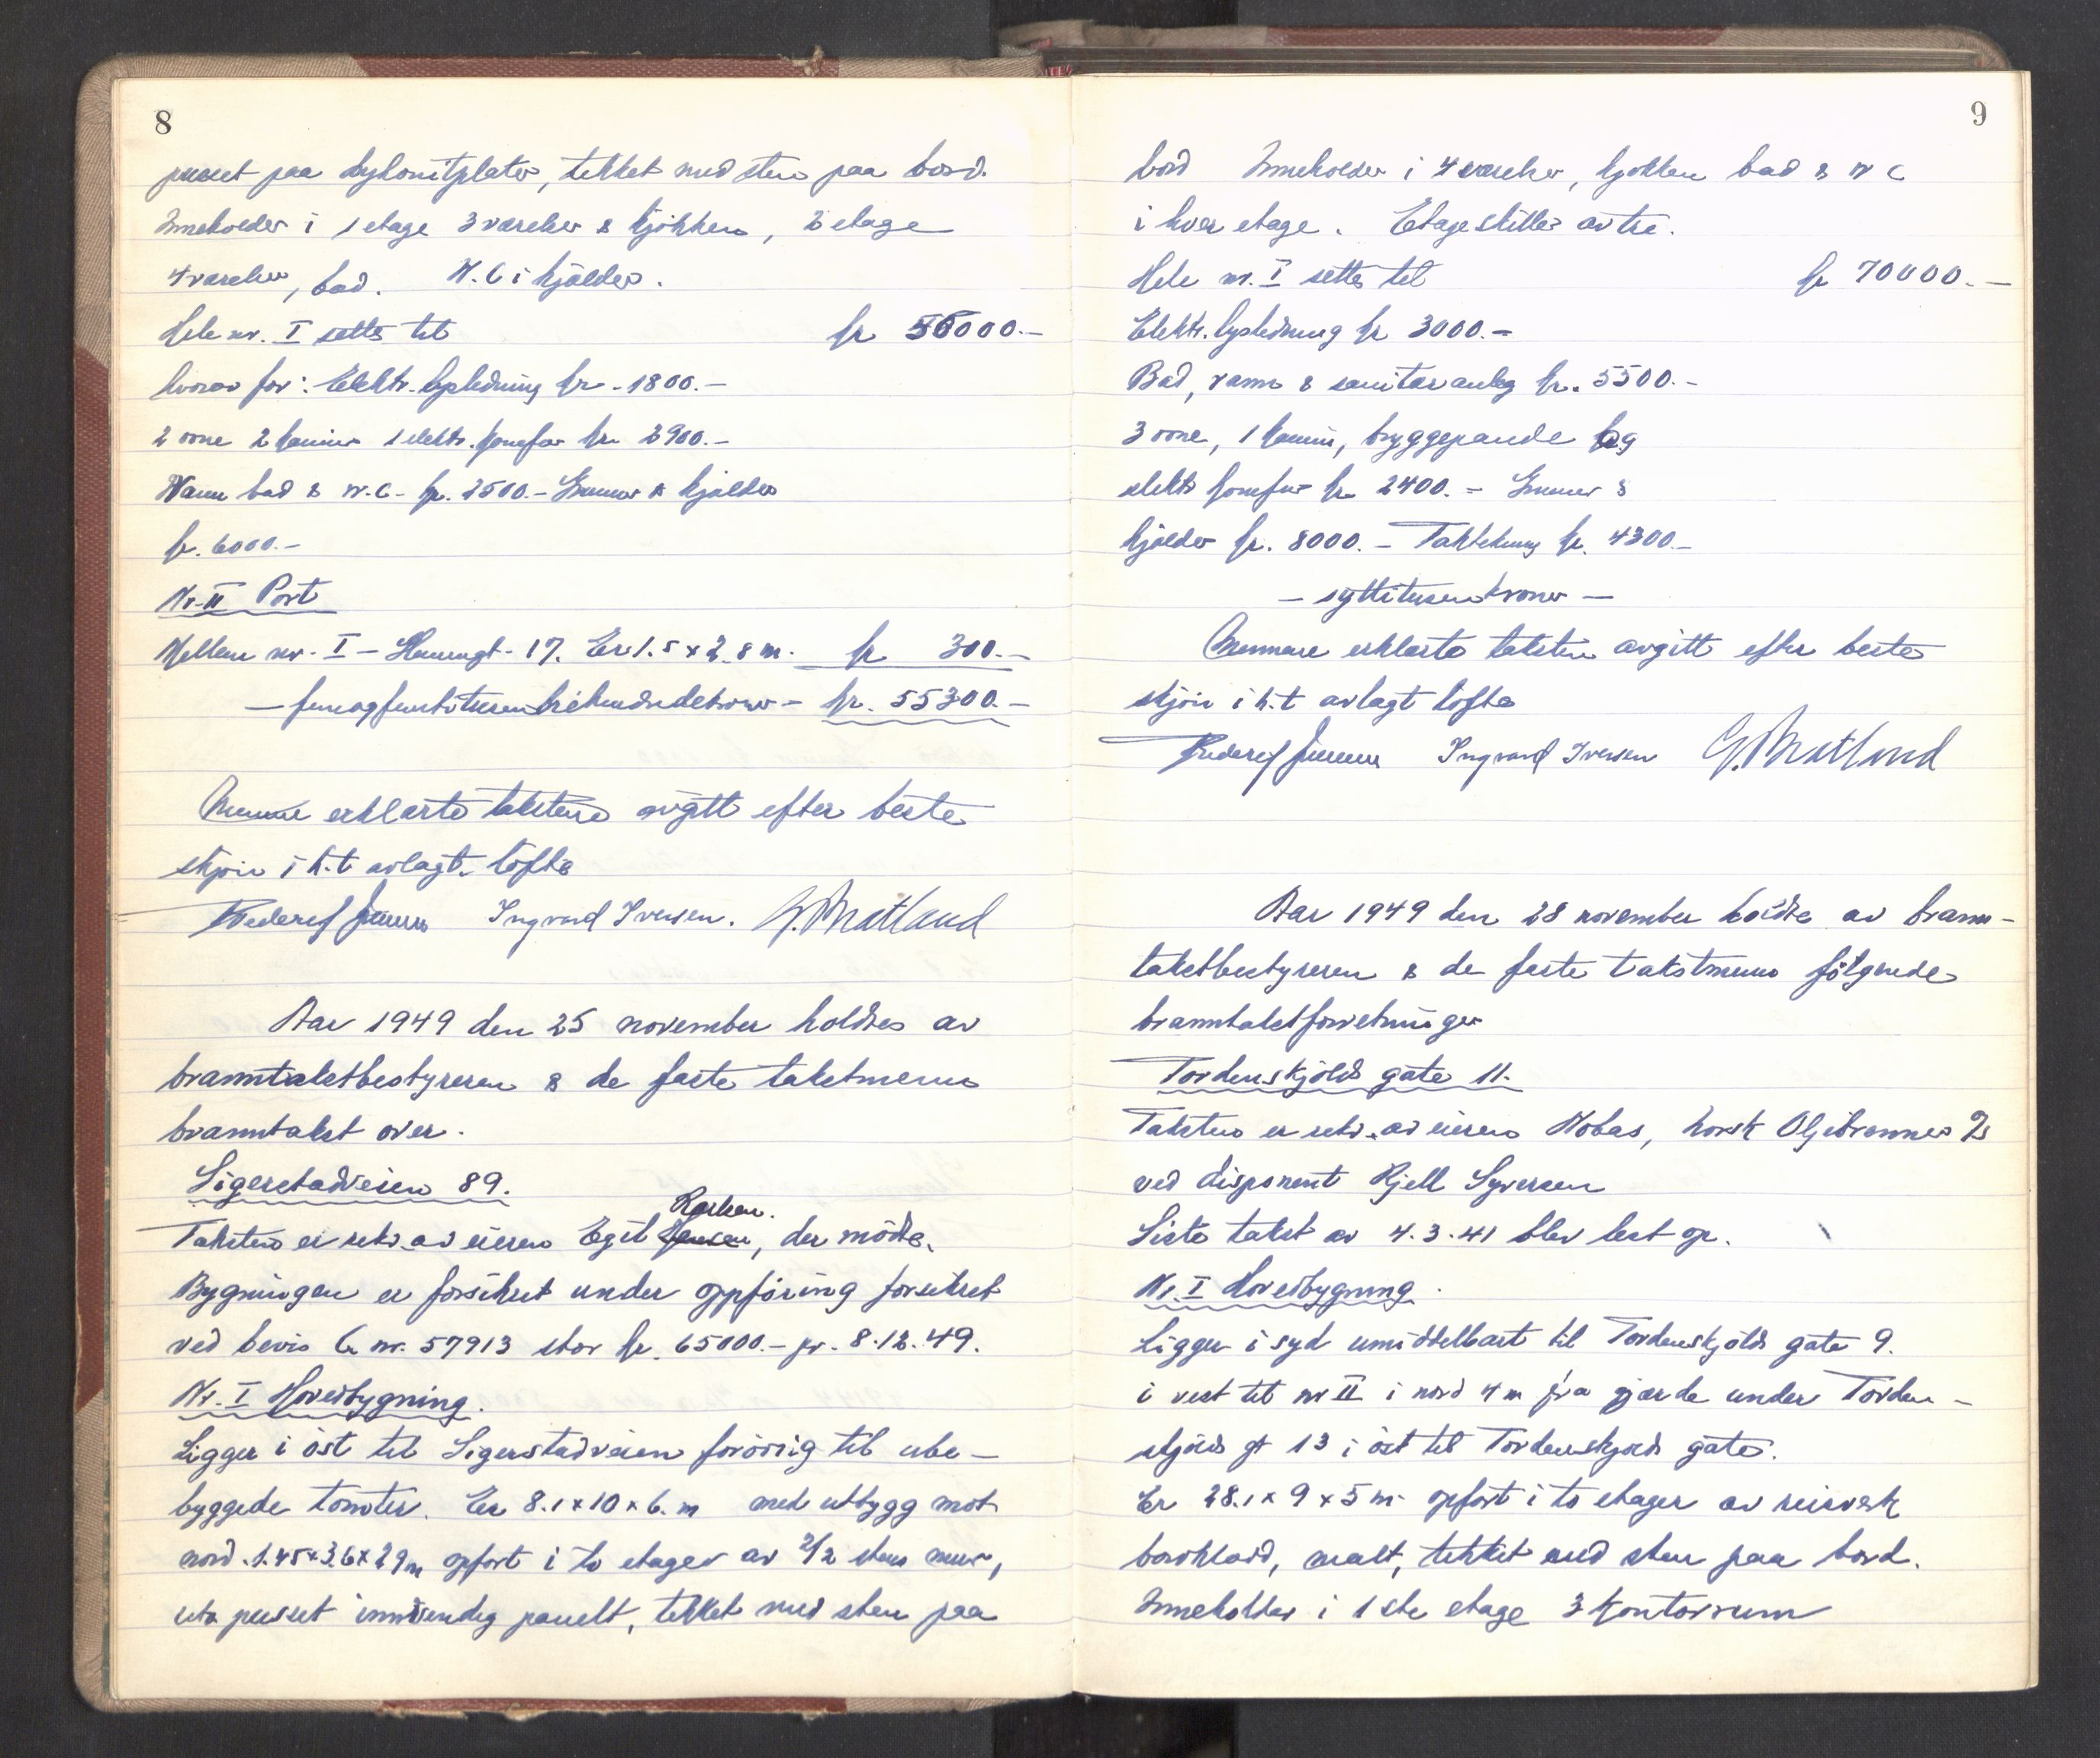 8
pusset paa hylonitplater, tekket med sten paa bord.
Inneholder i 1 etage 3 værelser & kjøkken, 2 etage
4 værelser, bad. W.C i kjelder.
Hele nr. I settes til kr 55000.-
hvorav for: Elektr. lysledning kr. 1800.-
2 ovne 2 kaminer 1 elektr. komfør kr 2900.-
Vann bad & w.c. kr. 2500.- Grunnmur & kjelder
kr. 6000.-
Nr. II Port
Mellem nr. I - 17. Er 1.5 x 2.8 m. kr 300.-
- femogfemtitusentrehundrekroner - kr. 55300.-
Mennene erklærte taksten avgitt efter beste
skjøn i h.t avlagt løfte
Ingvard Iversen. G. Matland
Aar 1949 den 25 november holdtes av
branntakstbestyreren & de faste takstmenn
branntakst over.
Sigerstadveien 89.
Karlsen.
Taksten er rekv. av eieren Egil Jensen, der møtte.
Bygningen er forsikret under oppføring forsikret
ved bevis C nr. 57913 stor kr. 65000.- pr. 8.12.49.
Nr. I Hovedbygning.
Ligger i øst til Sigerstadveien forøvrig til ube-
byggede tomter. Er 8.1 x 10 x 6. m med utbygg mot
nord. 1.45 x 3.6 x 2.9 m opført i to etager av 2/2 stens mur,
utv pusset innvendig panelt, tekket med sten paa
9
bord Inneholder i 4 værelser, kjøkken bad & w c
i hver etage. Etageskiller av tre.
Hele nr. I settes til kr 70000.-
Elektr. lysledning kr 3000.-
Bad, vann & sanitæranleg kr. 5500.-
3 ovne, 1 kamin, bryggepande og
elektr komfur kr 2400.- Grunnmur &
kjelder kr. 8000.- Taktekning kr. 4300.-
- syttitusenkroner -
Mennene erklærte taksten avgitt efter beste
skjøn i h.t avlagt løfte
Ingvard Iversen G. Matland
Aar 1949 den 28 november holdtes av brann-
takstbestyreren & de faste takstmenn følgende
branntakstforretninger
Tordenskjolds gate 11.
Taksten er rekv. av eieren Nobas, norsk Oljebrenner
ved disponent Kjell Syversen
Siste takst av 4.3.41 blev lest op.
Nr. I Hovedbygning.
Ligger i syd umiddelbart til Tordenskjolds gate 9.
i vest til nr II i nord 4 m fra gjærde under Torden-
skjolds gt 13 i øst til Tordenskjolds gate.
Er 28.1 x 9 x 5 m opført i to etager av reisverk
bordklædd, malt, tekket med sten paa bord.
Inneholder i 1 ste etage 3 kontorrum